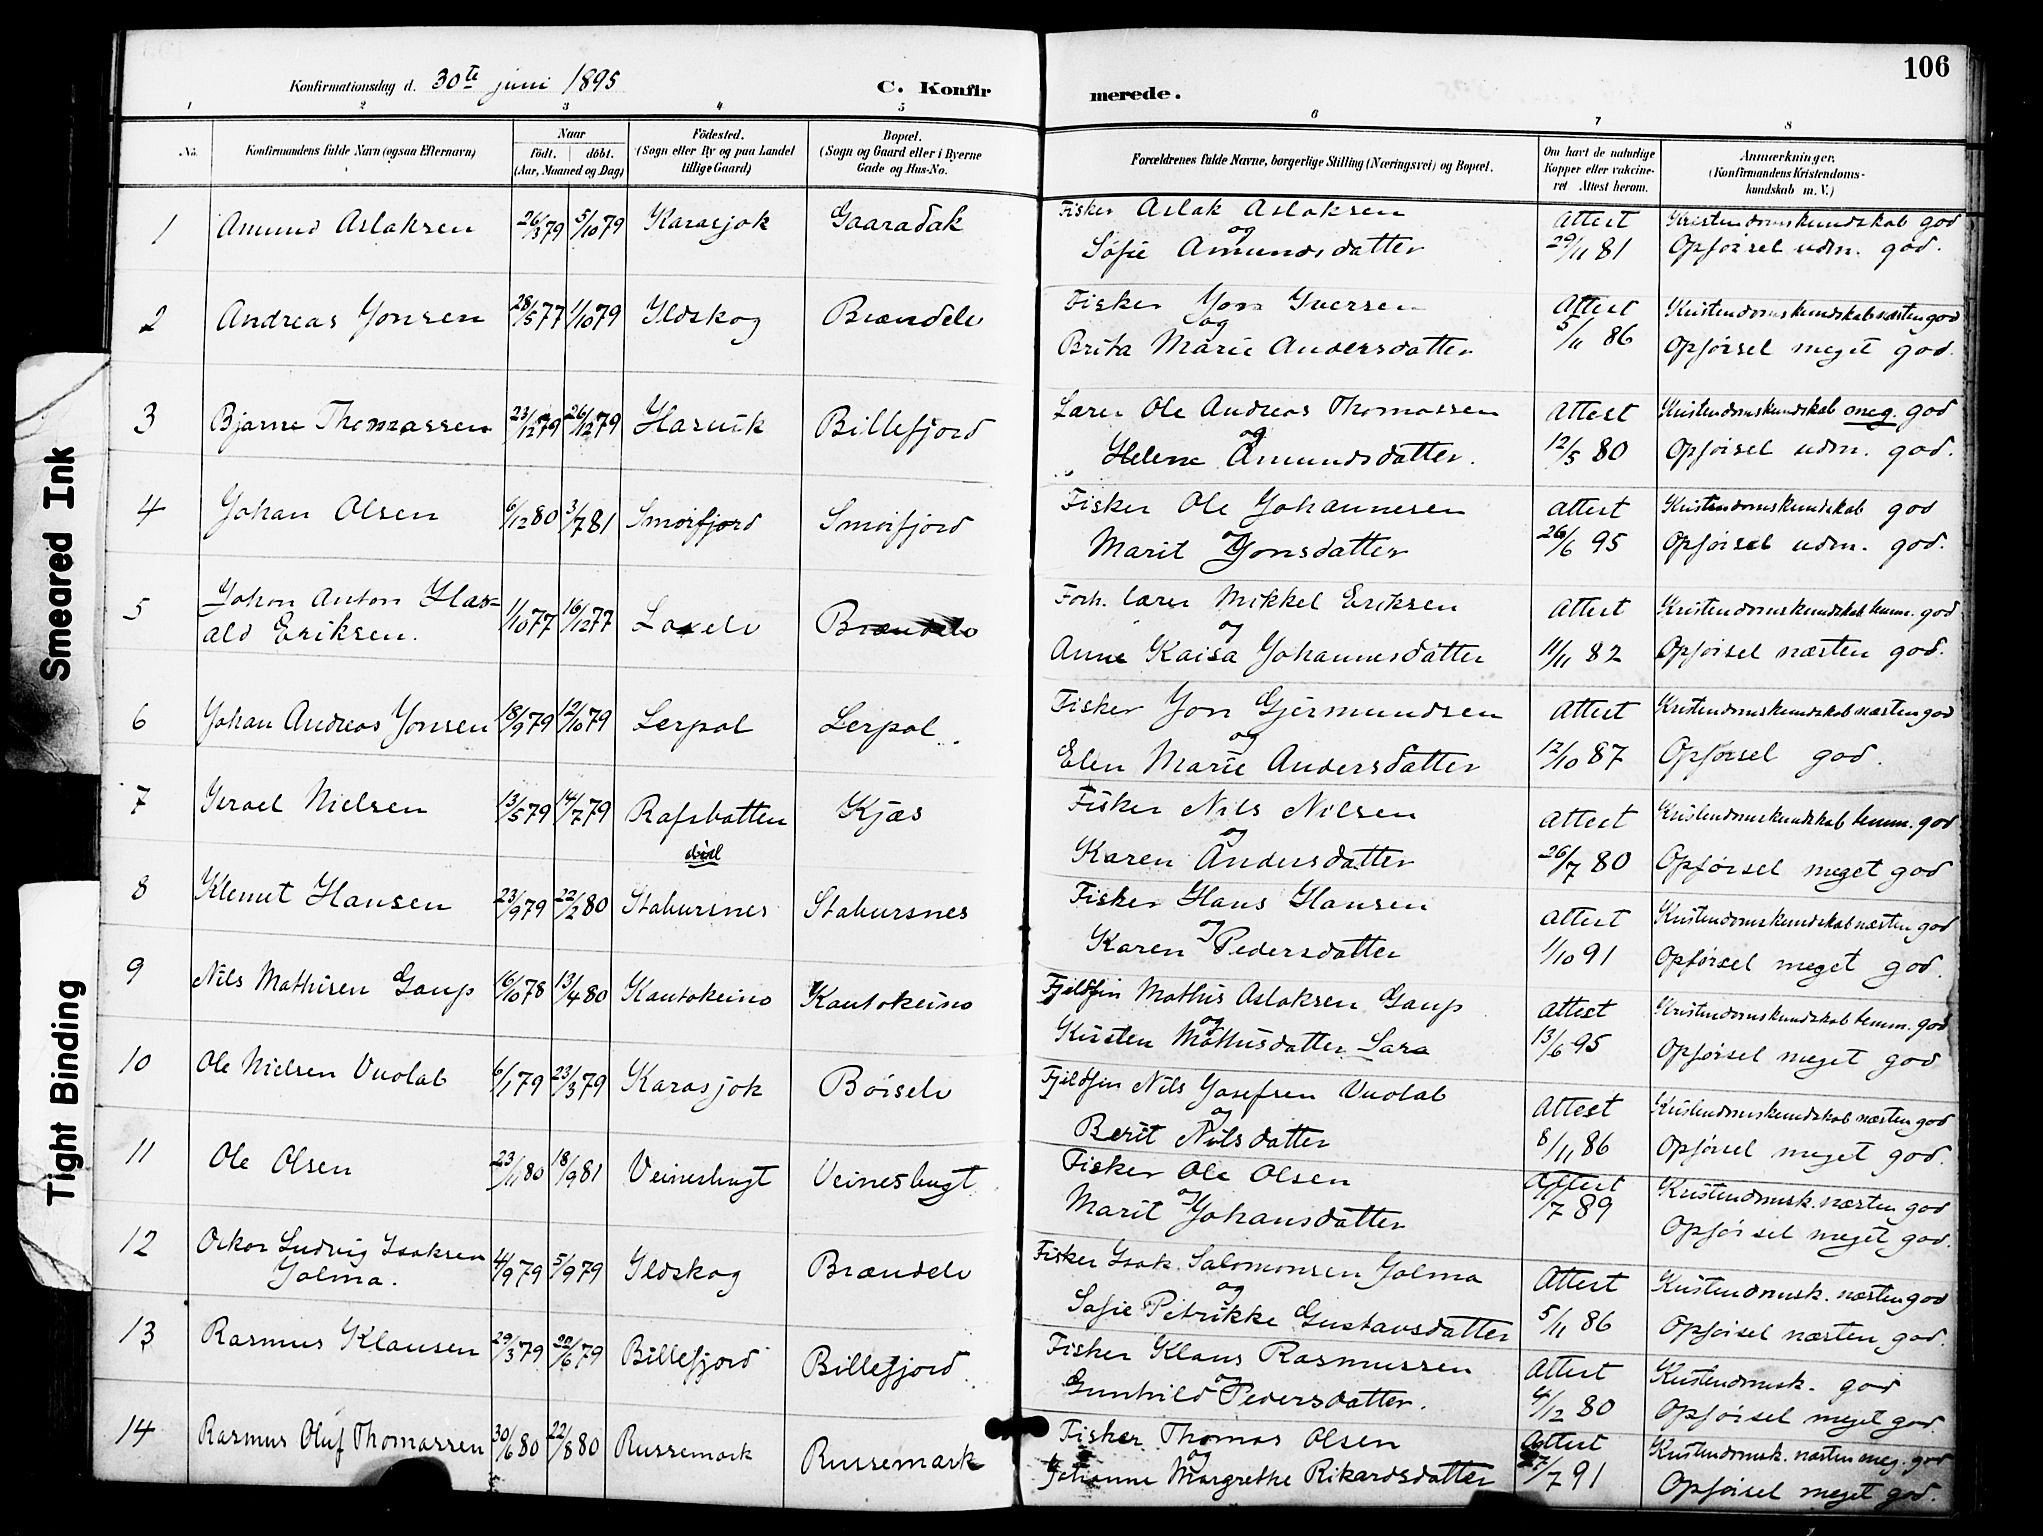 106
Konfirmationsdag d. 30te juni 1895
C. Konfirmerede.
1 2 3 4 5 6 7 8
No. Konfirmandens fulde Navn (ogsaa Efternavn)
Naar
födt. döbt.
(Aar, Maaned og Dag)
Födested.
(Sogn eller By og paa Landet
tillige Gaard)
Bopæl.
(Sogn og Gaard eller i Byerne
Gade og Hus-No.
Forældrenes fulde Navne, borgerlige Stilling (Næringsvei) og Bopæl.
Om havt de naturlige
Kopper eller vakcine-
ret Attest herom.
Anmærkninger.
(Konfirmandens Kristendoms-
kundskab m. V.)
1 Amund Aslaksen 26/3 79 5/10 79 Karasjok Gaaradak Fisker Aslak Aslaksen Attest Kristendomskundskab god
og
Sofie Amundsdatter 29/11 81 Opførsel udm. god.
2 Andreas Jonsen 28/5 77 1/10 79 Ildskog Brændelv Fisker Jon Iversen Attest Kristendomskundskab næsten god
og
Brita Marie Andersdatter 5/11 86 Opførsel meget god.
3 Bjarne Thomassen 23/12 79 26/12 79 Havvik Billefjord Lærer Ole Andreas Thomassen Attest Kristendomskundskab meg. god
og
Helene Amundsdatter. 12/5 80 Opførsel udm. god.
4 Johan Olsen 6/12 80 3/7 81 Smørfjord Smørfjord Fisker Ole Johannesen Attest Kristendomskundskab god
og
Marit Jonsdatter 26/6 95 Opførsel udm. god.
5 Johan Anton Har=
ald Eriksen. 11/10 77 16/12 77 Laxelv Brændelv Forh. lærer Mikkel Eriksen Attest Kristendomskundskab temm. god
og
Anne Kaisa Johannesdatter 11/11 82 Opførsel næsten god.
6 Johan Andreas Jonsen 18/9 79 12/10 79 Lerpol Lerpol. Fisker Jon Gjermundsen Attest Kristendomskundskab næsten god
og
Elen Marie Andersdatter 12/10 87 Opførsel god.
7 Israel Nielsen 13/5 79 14/7 79 Rafsbotten Kjæs Fisker Nils Nilsen Attest Kristendomskundskab temm. god
og
Karen Andersdatter 26/7 80 Opførsel meget god
8 Klemet Hansen 23/9 79 22/2 80 Stabursnes Stabursnes Fisker Hans Hansen Attest Kristendomskundskab næsten god
og
Karen Pedersdatter 1/10 91 Opførsel meget god.
9 Nils Mathisen Gaup 16/10 78 13/4 80 Kautokeino Kautokeino Fjeldfin Mathis Aslaksen Gaup Attest Kristendomskundskab temm. god
og
Kirsten Mathisdatter Sara 13/6 95 Opførsel meget god
10 Ole Nielsen Vuolab 6/1 79 23/3 79 Karasjok Børselv Fjeldfin Nils Josefsen Vuolab Attest Kristendomskundskab næsten god
og
Berit Nilsdatter 8/11 86 Opførsel meget god.
11 Ole Olsen 23/11 80 18/9 81 Veinesbugt Veinesbugt Fisker Ole Olsen Attest Kristendomsk. næsten god
og
Marit Johansdatter /7 89 Opførsel meget god.
12 Oskar Ludvig Isaksen
Jolma. 4/9 79 5/9 79 Ildskog Brændelv Fisker Isak Salomonsen Jolma Attest Kristendomsk. næsten god
og
Sofie Petrikke Gustavsdatter 5/11 86 Opførsel næsten god.
13 Rasmus Klausen 29/3 79 22/6 79 Billefjord Billefjord. Fisker Klaus Rasmussen Attest Kristendomsk. god
og
Gunhild Pedersdatter. 4/12 80 Opførsel meget god.
14 Rasmus Oluf Thomassen 30/6 80 22/8 80 Russemark Russemark Fisker Thomas Olsen Attest Kristendomsk. næsten meg. god
og
Johanne Margrethe Rikardsdatter 27/7 91 Opførsel meget god.
Smeared Ink
Tight Binding